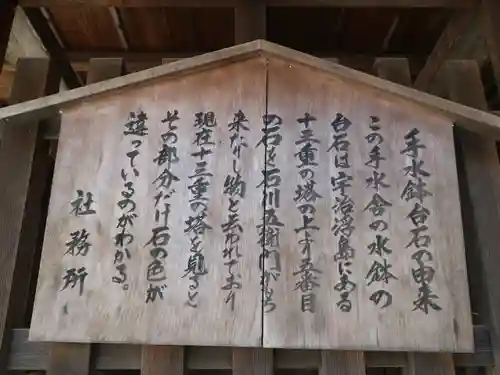 手水鉢台石の由来
この手水舎の水鉢の
台石は宇治浮島にある
十三重の塔の上ゟ五番目
の石を石川五右衛門が
来なし物と云われており
現在十三重の塔を見ると
その部分だけ石の色が
違っているのがわかる。
社務所